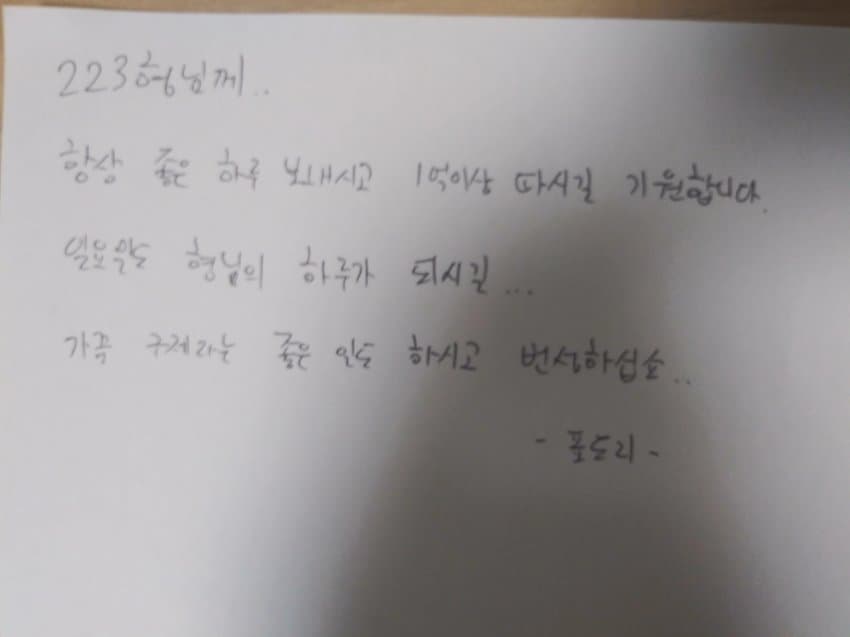 223형님께..
항상 좋은 하루 보내시고 1억이상 따시길 기원합니다.
일요일도 형님의 하루가 되시길...
가끔 구제라는 좋은 일도 하시고 번성하십쇼..
- 포도리 -